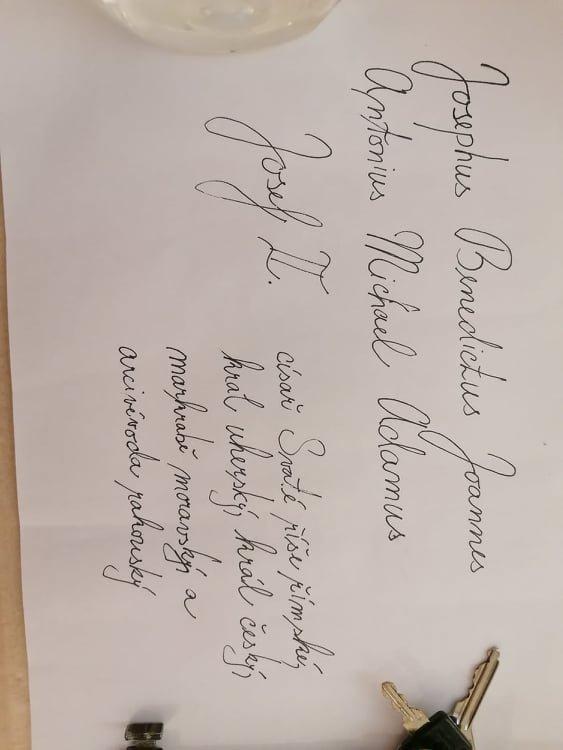 Josephus Benedictus Joannes
Antonius Michael Adamus
Josef II.
císař Svaté říše římské,
král uherský, král český,
markrabě moravský a
arcivévoda rakouský